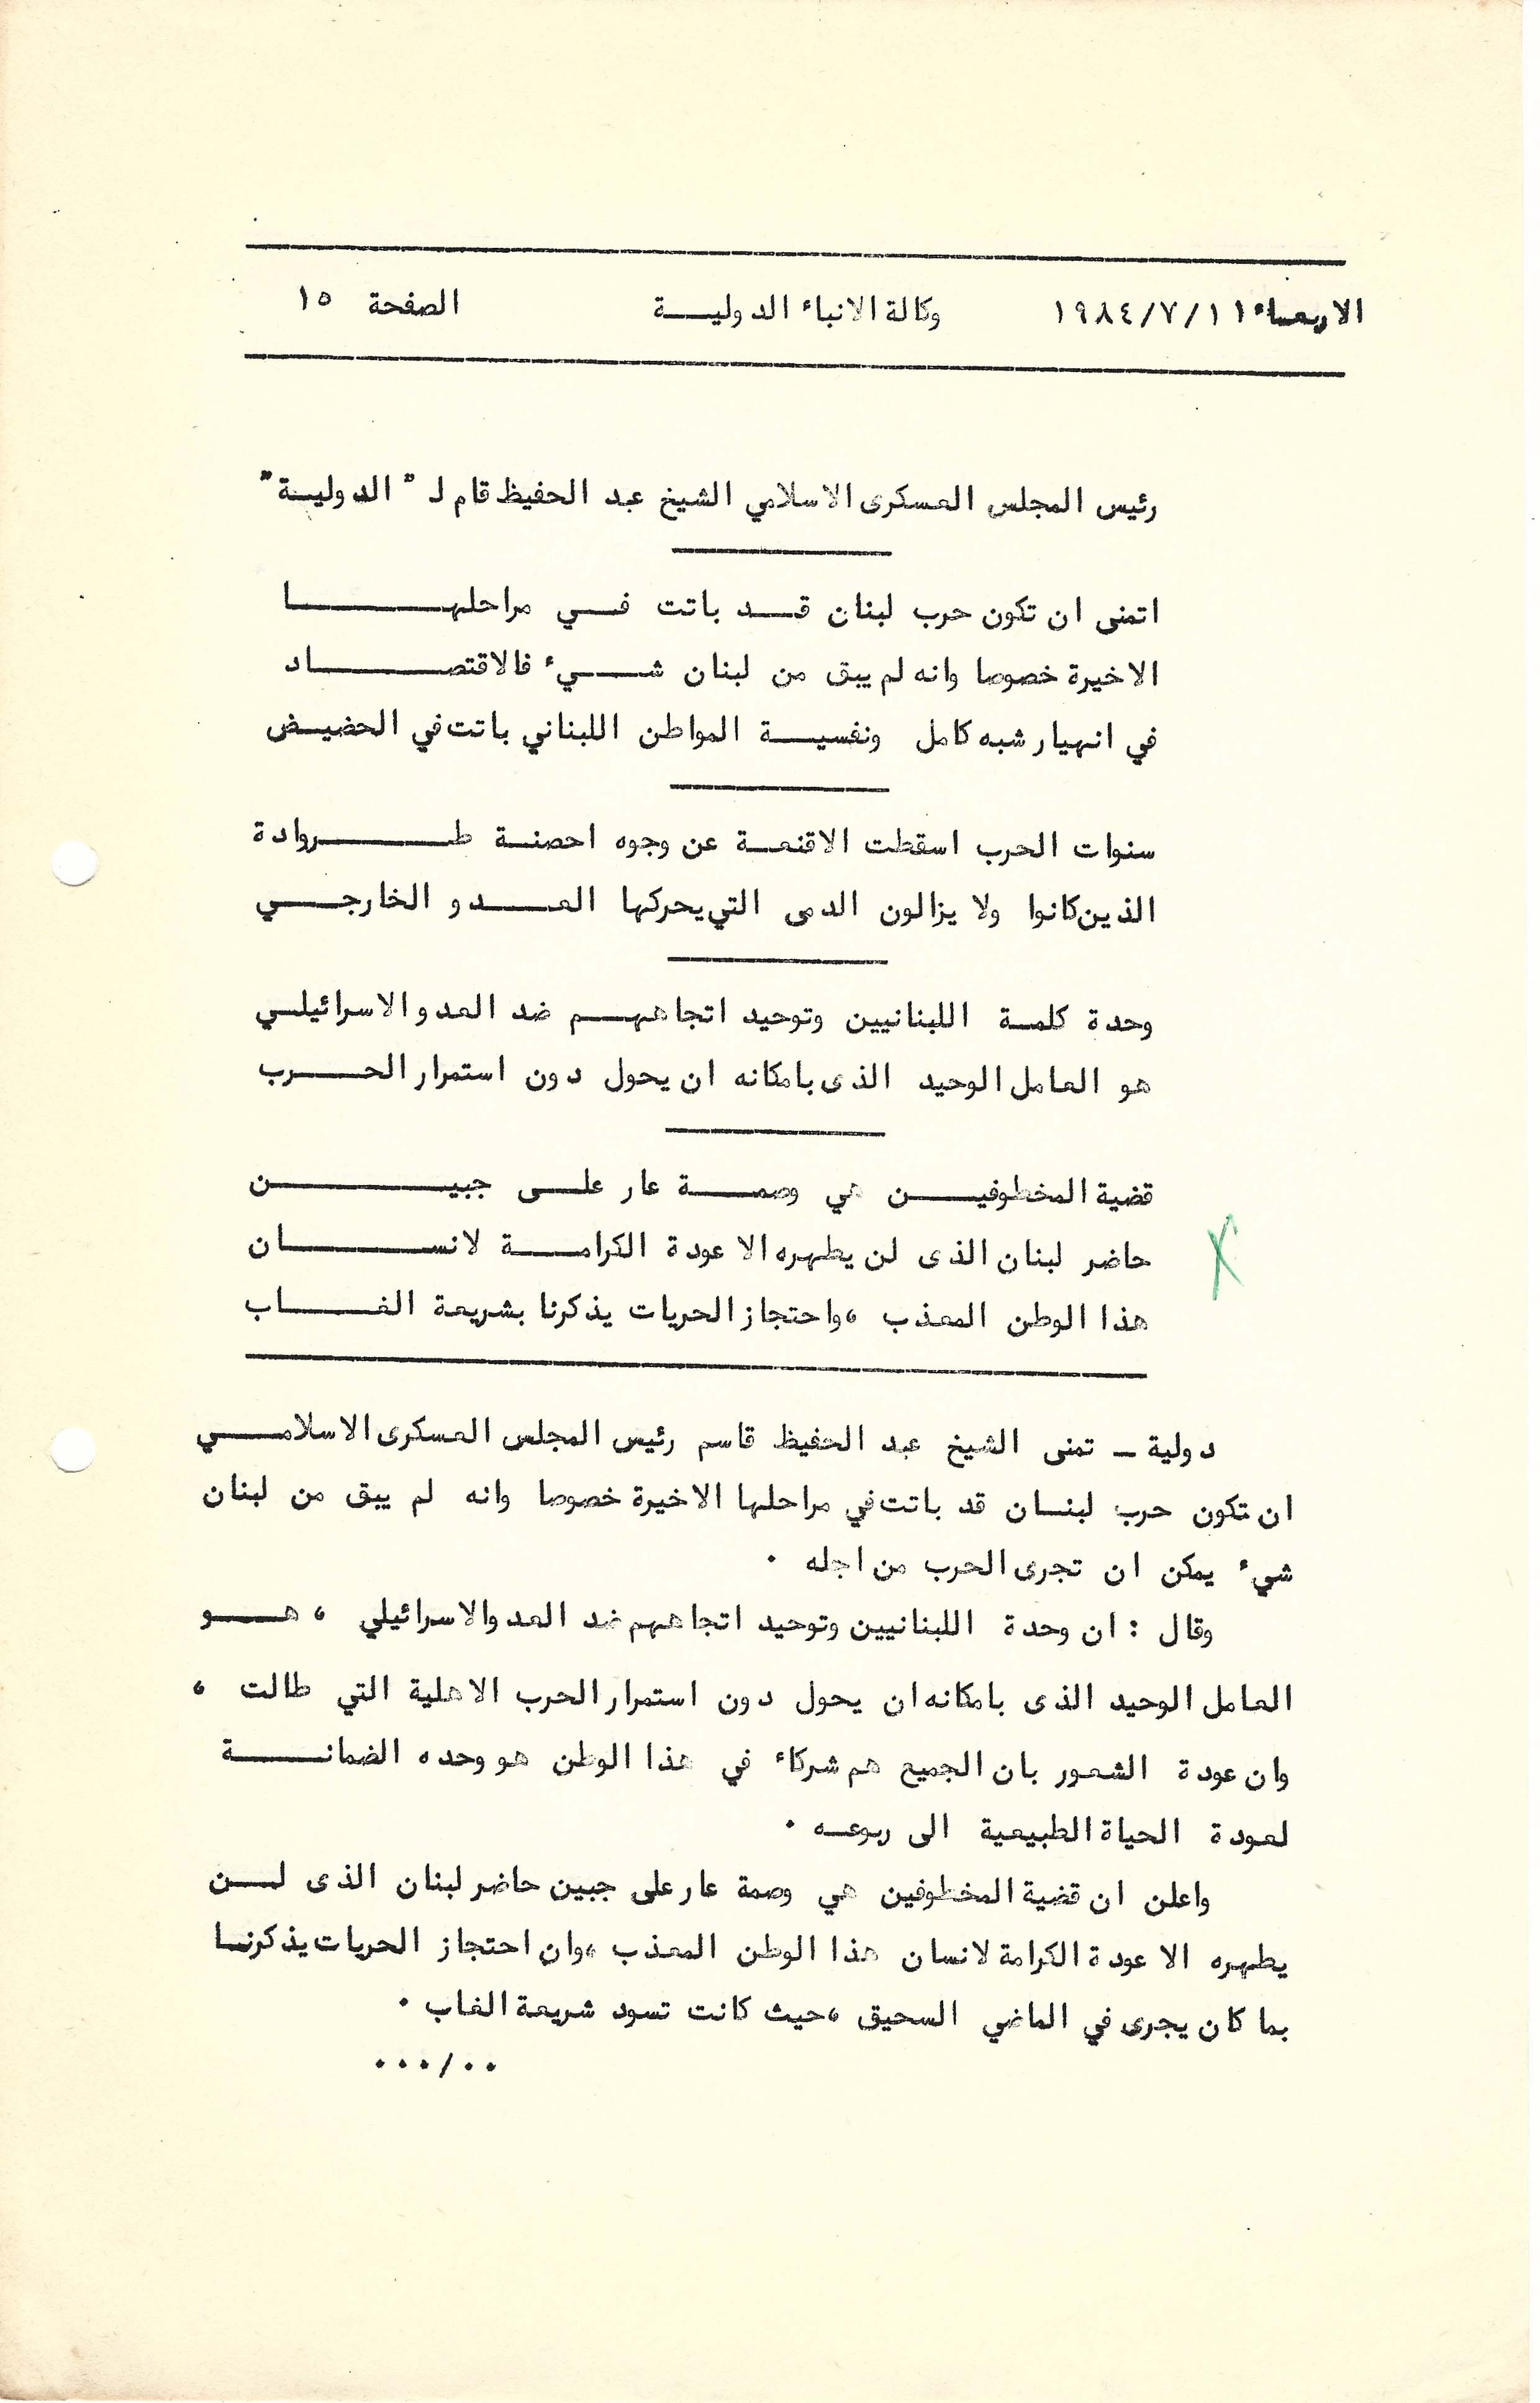 الاربعاء ١١/٧/١٩٨٤ وكالة الانباء الدولية الصفحة ١٥
رئيس المجلس العسكرى الاسلامي الشيخ عبد الحفيظ قام لـ " الدولية "
اتمنى ان تكون حرب لبنان قد باتت في مراحلها
الاخيرة خصوصا وانه لم يبق من لبنان شيء فالاقتصاد
في انهيار شبه كامل ونفسية المواطن اللبناني باتت في الحضيض
سنوات الحرب اسقطت الاقنعة عن وجوه احصنة طروادة
الذين كانوا ولا يزالون الدمى التي يحركها العدو الخارجي
وحدة كلمة اللبنانيين وتوحيد اتجاههم ضد العدو الاسرائيلي
هو العامل الوحيد الذى بامكانه ان يحول دون استمرار الحرب
قضية المخطوفين هي وصمة عار على جبين
حاضر لبنان الذى لن يطهره الا عودة الكرامة لانسان
هذا الوطن المعذب ، واحتجاز الحريات يذكرنا بشريعة الغاب
دولية - تمنى الشيخ عبد الحفيظ قاسم رئيس المجلس العسكرى الاسلامي
ان تكون حرب لبنان قد باتت في مراحلها الاخيرة خصوصا وانه لم يبق من لبنان
شيء يمكن ان تجرى الحرب من اجله .
وقال : ان وحدة اللبنانيين وتوحيد اتجاههم ضد العدو الاسرائيلي ، هو
العامل الوحيد الذى بامكانه ان يحول دون استمرار الحرب الاهلية التي طالت ،
وان عودة الشعور بان الجميع هم شركاء في هذا الوطن هو وحده الضمانة
لعودة الحياة الطبيعية الى ربوعه .
واعلن ان قضية المخطوفين هي وصمة عار على جبين حاضر لبنان الذى لن
يطهره الا عودة الكرامة لانسان هذا الوطن المعذب ، وان احتجاز الحريات يذكرنا
بما كان يجرى في الماضي السحيق ، حيث كانت تسود شريعة الغاب .
٠٠/٠٠٠